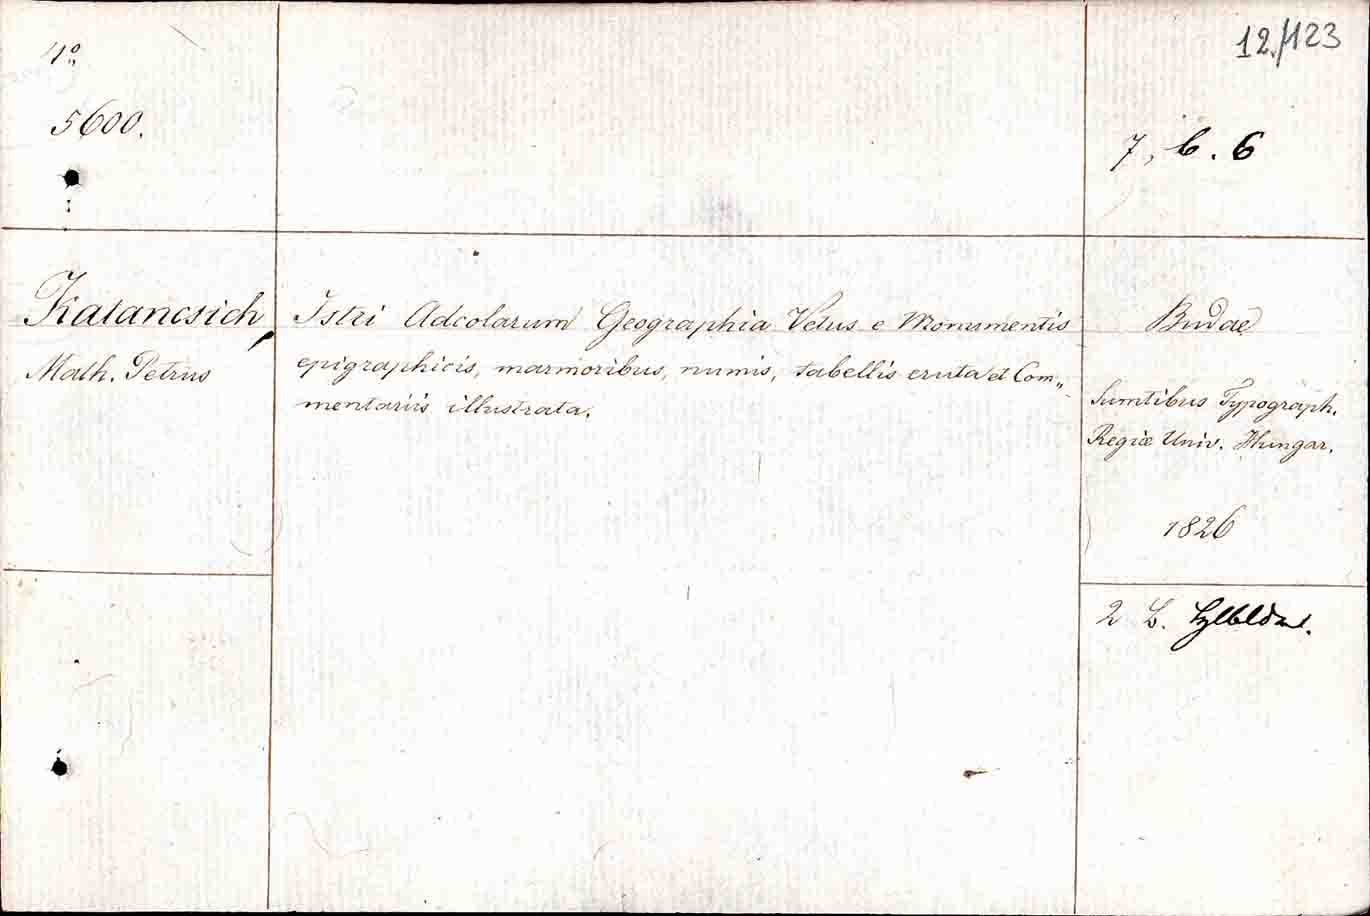 4°
5600.
12./123
7, b. 6
Katancsich,
Math. Petrus
Istri Adcolarum Geographia Vetus e Monumentis
epigraphicis, marmoribus, numis, tabellis eruta et Com„
mentariis illustrata.
Budae
Sumtibus Typograph.
Regiæ Univ. Hungar.
1826
2 L.